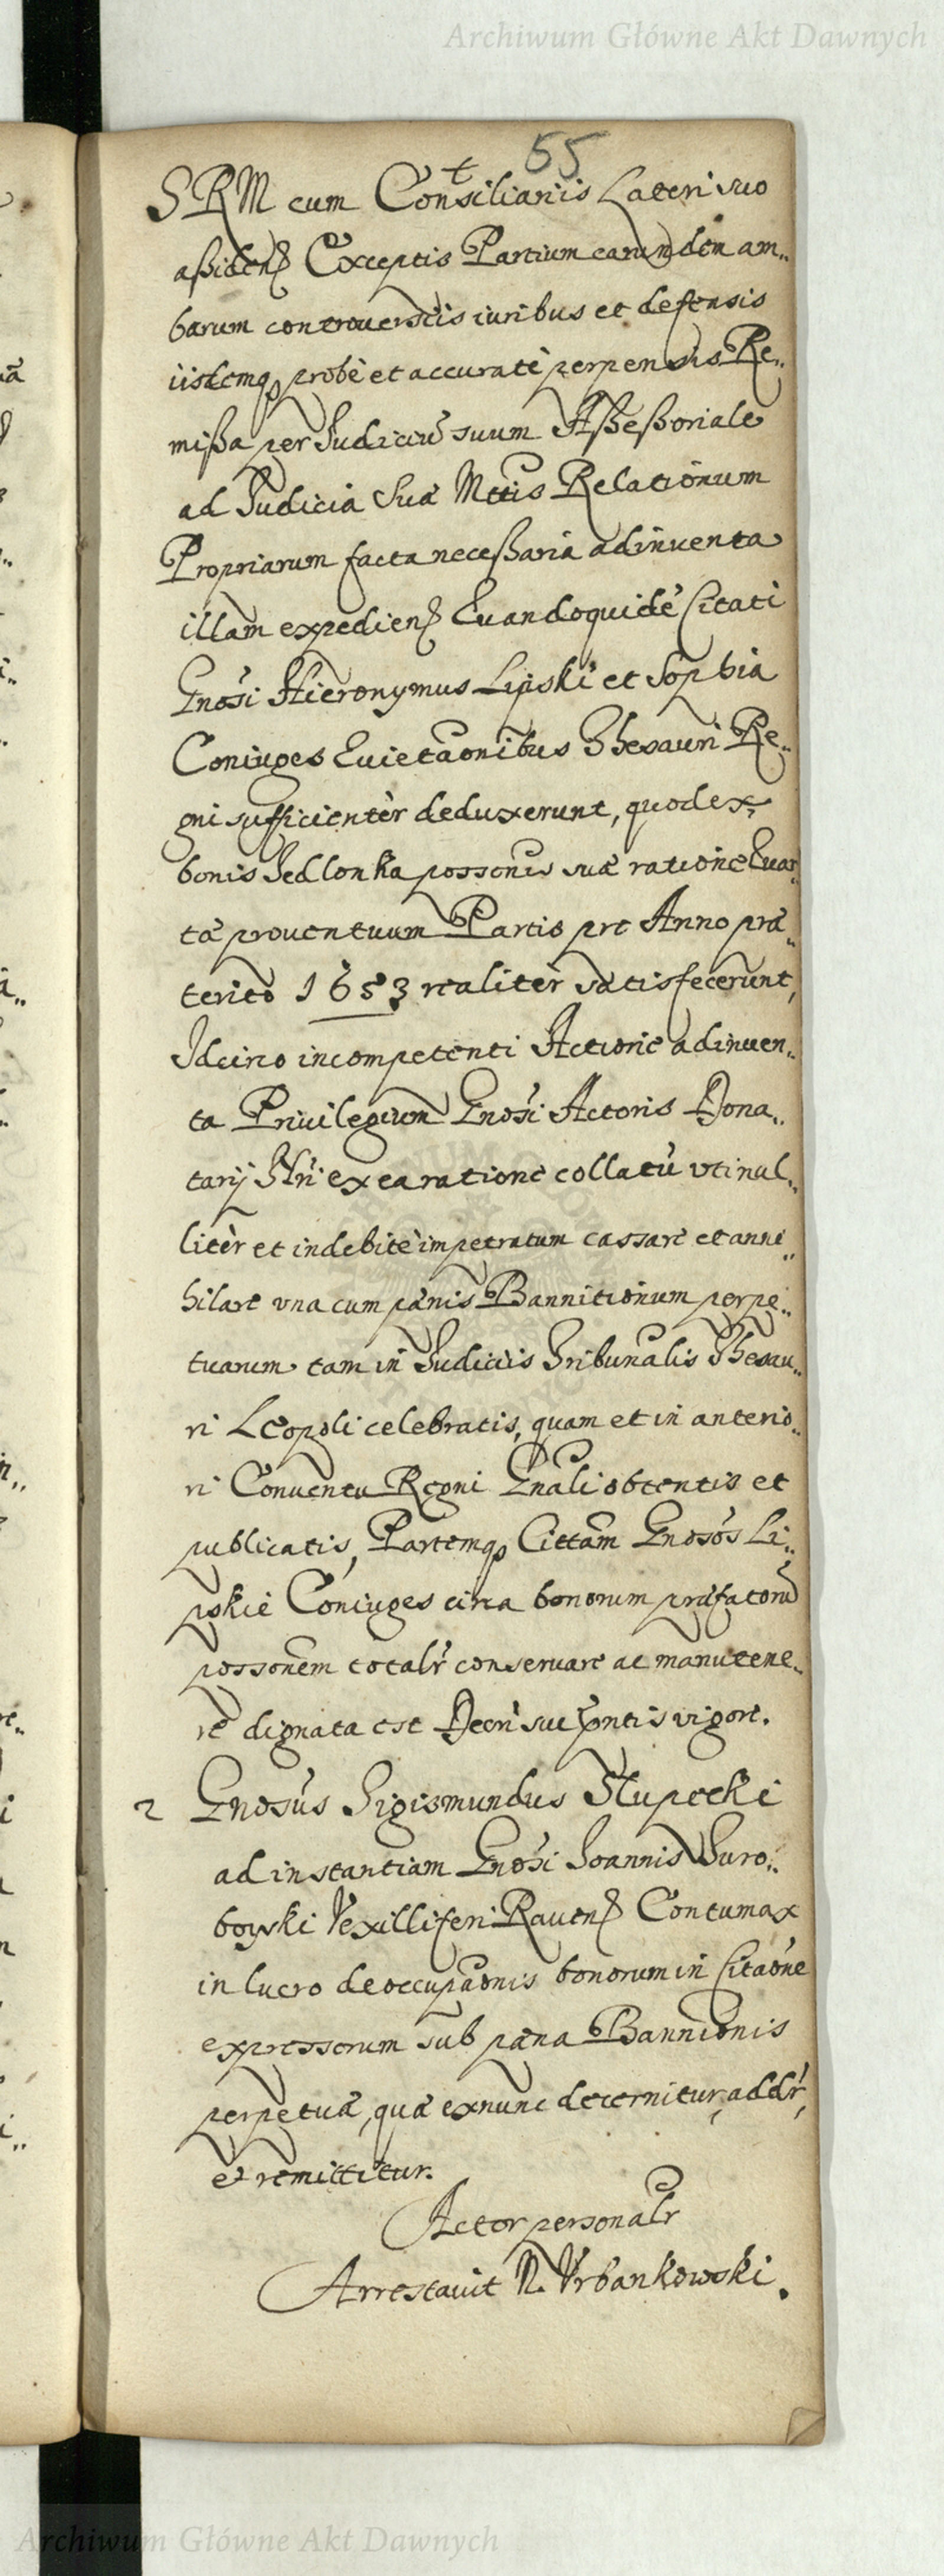 Archiwum Główne Akt Dawnych
55
t
S R M cum Consiliariis Lateri suo
aßiden Exceptis Partium earundem am„
barum controversiis iuribus et defensis
iisdemq probè et accuratè perpensis Re„
mißa per Judiciũ suum Aßeßoriale
ad Judicia Suæ Mttis Relationum
Propriarum facta neceßaria adinuenta
illam expedien Quandoquidẽ Citati
Gnosi Hieronymus Lipski et Sophia
Coniuges Quietaonibus Thesauri Re„
gni sufficientèr deduxerunt, quod ex
bonis Jedlonka possonis suæ ratione Quar„
tæ prouentuum Partis pre Anno præ„
terito 1653 realiter satisfecerunt,
Idcirco incompetenti Actione adinuen„
ta Priuilegium Gnosi Actoris Dona„
tarij Sñ ex ea ratione collatũ vti nul„
litèr et indebitè impetratum cassare et anni„
hilare vna cum pænis Bannitionum perpe„
tuarum tam in Judiciis Tribunalis Thesau„
ri Leopoli celebratis, quam et in anterio„
ri Conuentu Regni Gnali obtentis et
publicatis, Partemq Cittam Gnosos Li„
pskie Coniuges circa bonorum præfatorũ
possonem totalr conseruare ac manutene„
re dignata est Decri sui pntis vigore.
2 Gnosus Sigismundus Słupecki
ad instantiam Gnosi Joannis Suro„
boyski Vexilliferi Rauen Contumax
in lucro deoccupaonis bonorum in Citaone
expressorum sub pæna Bannionis
perpetuæ, quæ exnunc decernitur, addr,
et remittitur.
Actor personalr
Arrestauit N. Vrbankowski.
Archiwum Główne Akt Dawnych